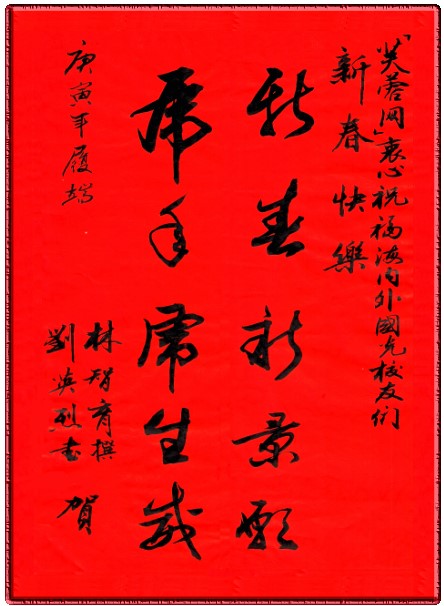 「芙蓉网」衷心祝福海内外國光校友们
新春快樂
新春新景
虎年虎生威
庚寅年履端
林智育撰
劉英烈书 賀